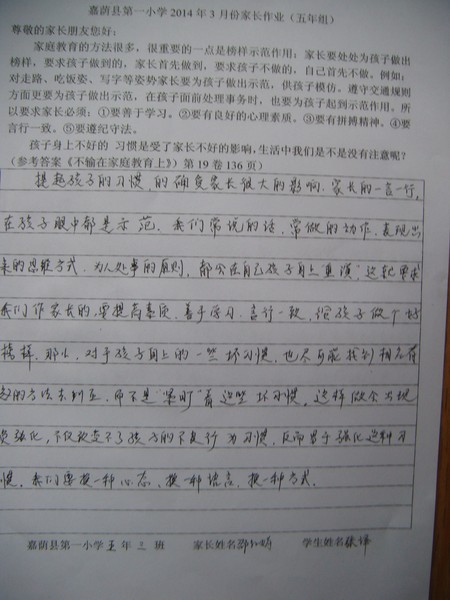 嘉荫县第一小学2014年3月份家长作业（五年组）
尊敬的家长朋友您好：
家庭教育的方法很多，很重要的一点是榜样示范作用；家长要处处为孩子做出
榜样，要求孩子做到的，家长首先做到，要求孩子不做的，自己首先不做。例如：
对走路、吃饭姿、写字等姿势家长要为孩子做出示范，供孩子模仿。遵守交通规则
方面更要为孩子做出示范，在孩子面前处理事务时，也要为孩子起到示范作用。所
以要求家长必须：①要善于学习。②要有良好的心理素质。③要有拼搏精神。④要
言行一致。⑤要遵纪守法。
孩子身上不好的 习惯是受了家长不好的影响，生活中我们是不是没有注意呢？
（参考答案《不输在家庭教育上》）第19卷136页）
提起孩子的习惯，的确受家长很大的影响。家长的一言一行，
在孩子眼中都是示范。我们常说的话，常做的动作，表现出
来的思维方式，为人处事的原则，都会在自己孩子身上"重演"这就要求
我们作家长的，要提高素质，善于学习，言行一致，给孩子做个好
榜样。那么，对于孩子身上的一些坏习惯，也尽可能找到相应有
的方法去纠正，而不是"紧盯"着这些坏习惯，这样做会出现
强化，不仅改变不了孩子的不良行为习惯，反而等于强化这种习
惯，我们要换一种心态，换一种语言，换一种方式。
嘉荫县第一小学五年三班 家长姓名 学生姓名张